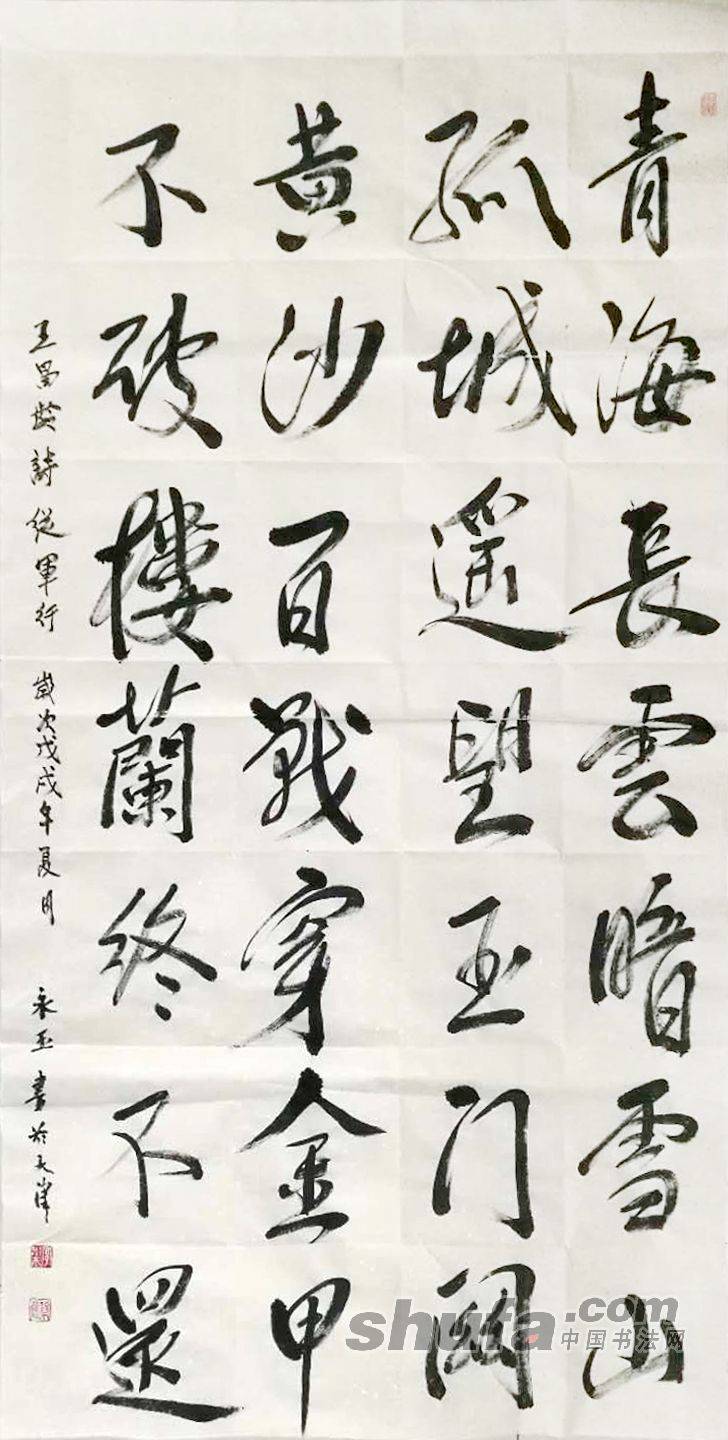 青海長雲暗雪山
孤城遥望玉门關
黄沙百戰穿金甲
不破樓蘭終不還
王昌齡詩從軍行 歲次戊戌年夏月 永玉書於天津
shufa.com
中国书法网